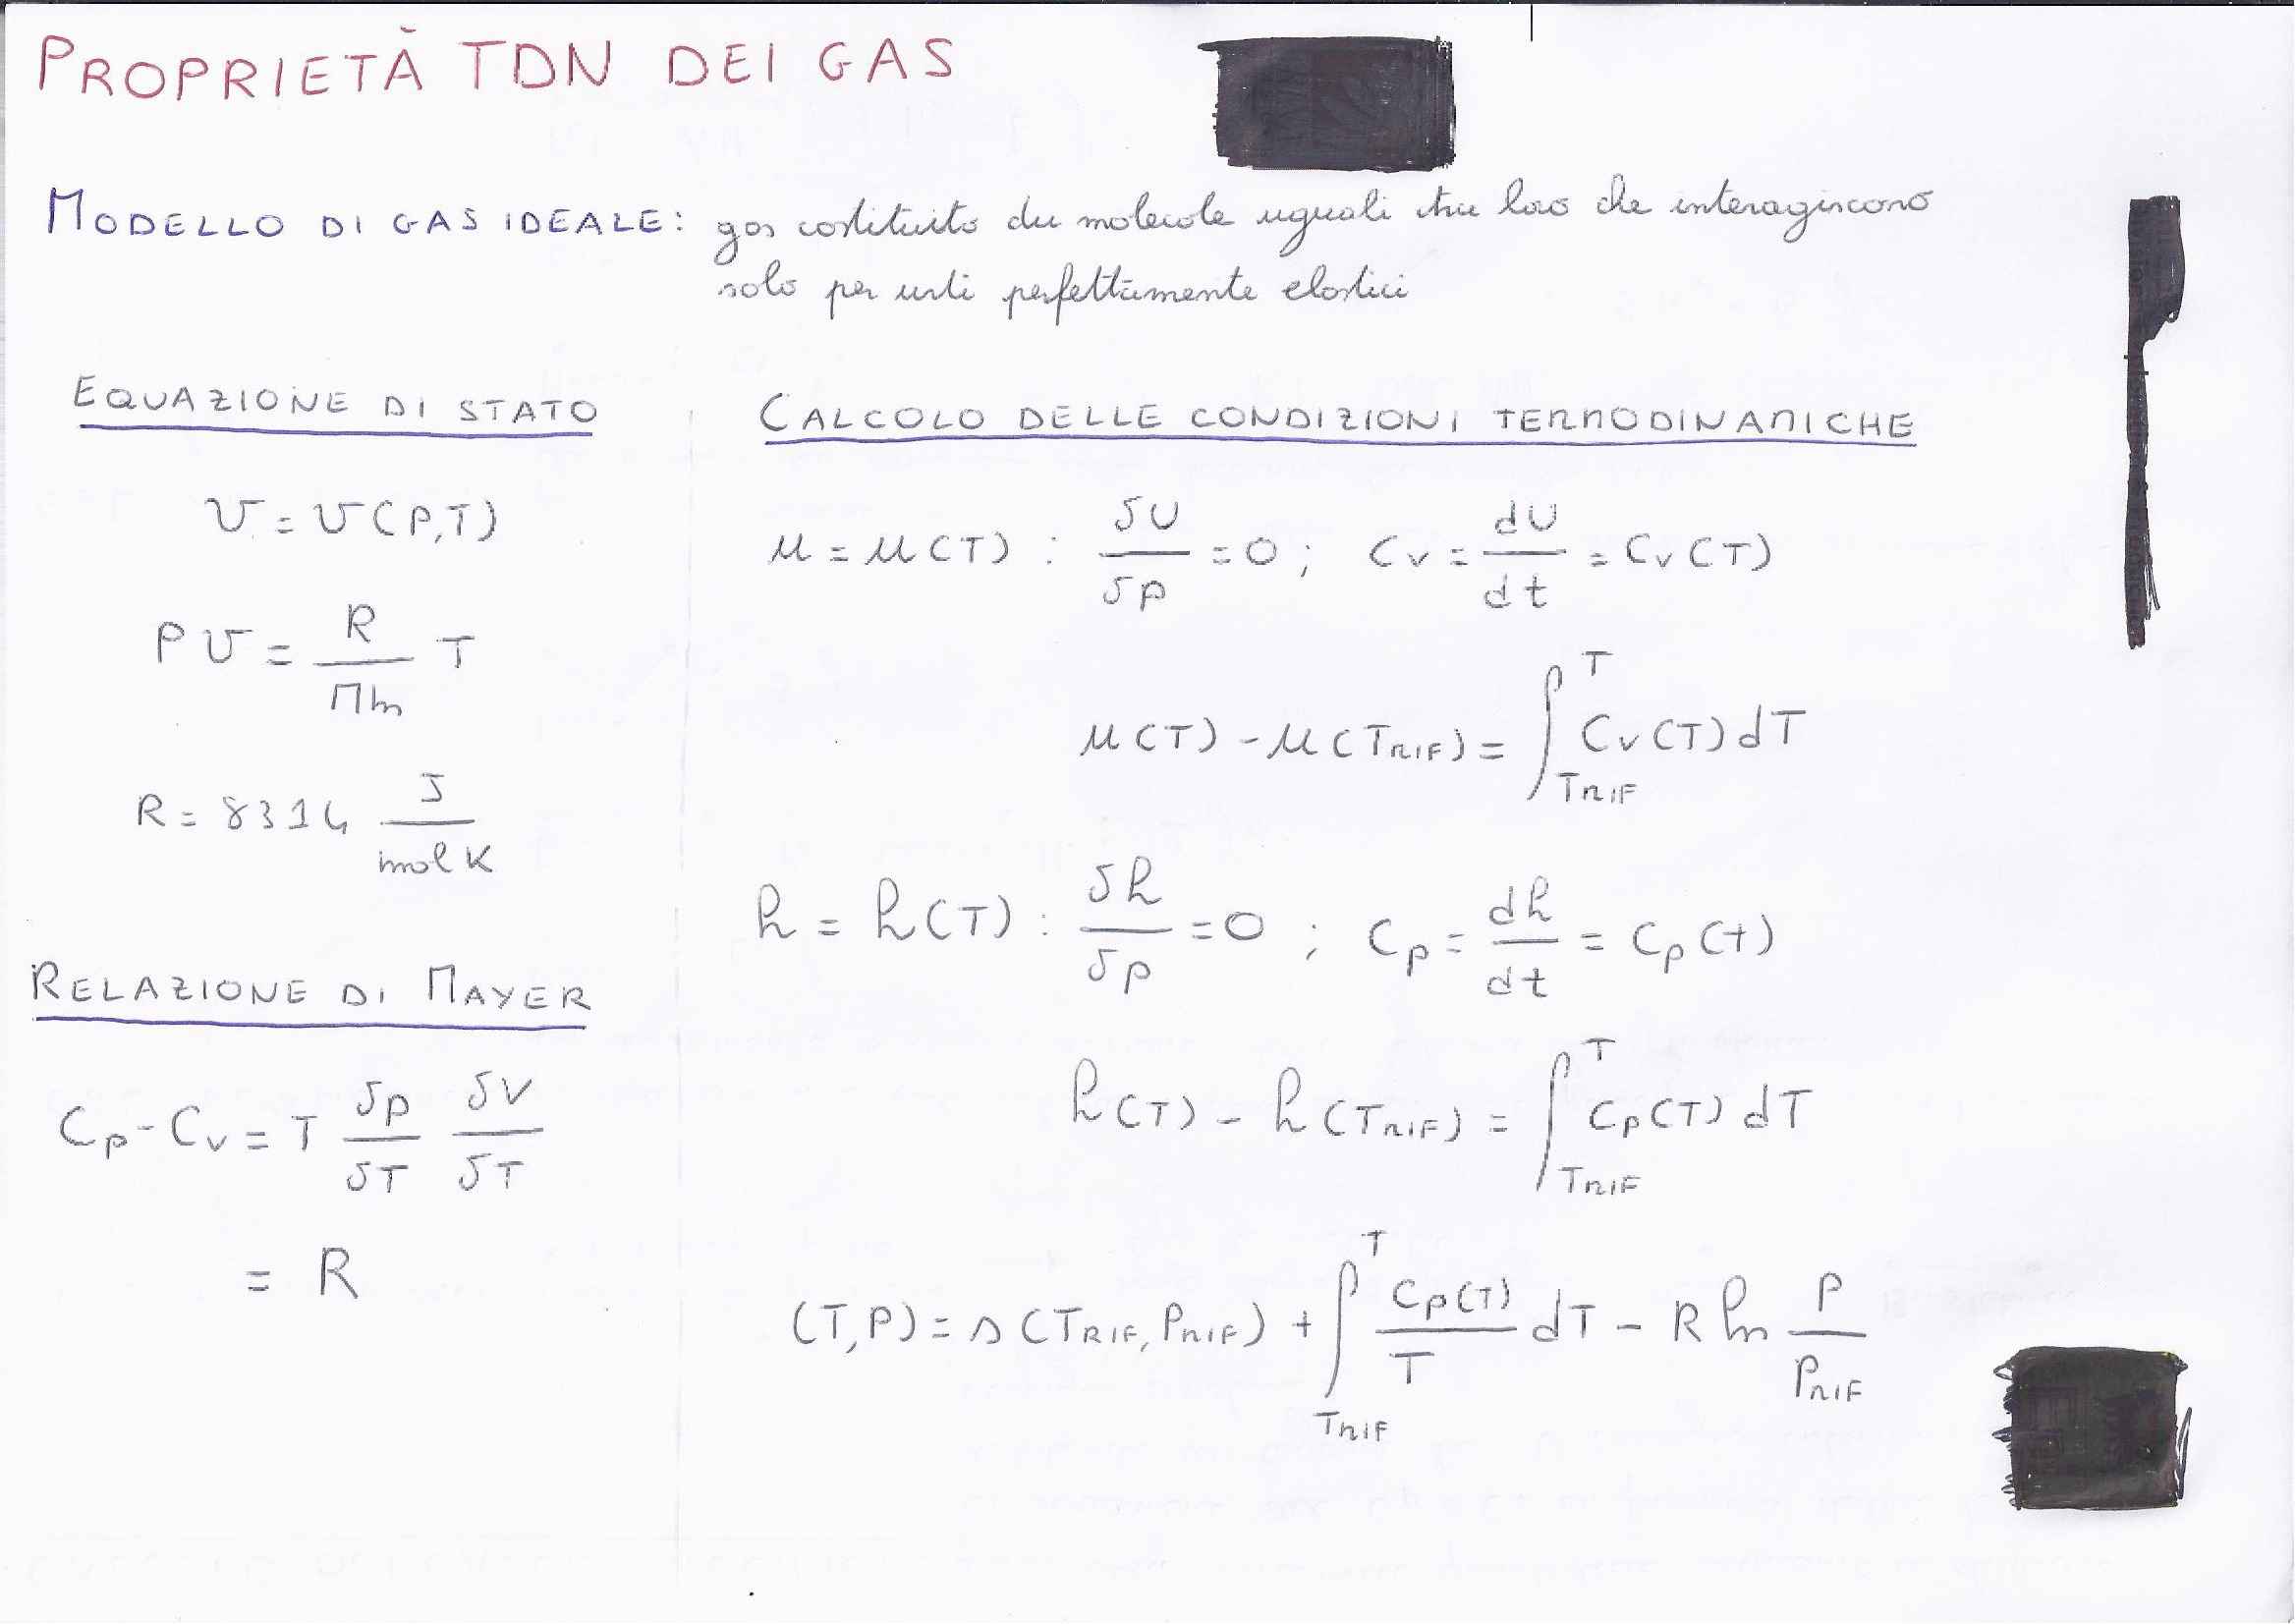 PROPRIETÀ TDN DEI GAS
MODELLO DI GAS IDEALE: gas costituito da molecole uguali tra loro che interagiscono
solo per urti perfettamente elastici
EQUAZIONE DI STATO
v = v(P,T)
Pv = R/Mm T
R = 8314 J/molK
RELAZIONE DI MAYER
Cp - Cv = T δp/δT δV/δT
= R
CALCOLO DELLE CONDIZIONI TERMODINAMICHE
u = u(T) : δU/δp = 0 ; Cv = dU/dt = Cv(T)
u(T) - u(TRIF) = ∫_TRIF^T Cv(T) dT
h = h(T) : δh/δp = 0 ; Cp = dh/dt = Cp(t)
h(T) - h(TRIF) = ∫_TRIF^T Cp(T) dT
(T,P) = s(TRIF, PRIF) + ∫_TRIF^T Cp(T)/T dT - R ln P/PRIF